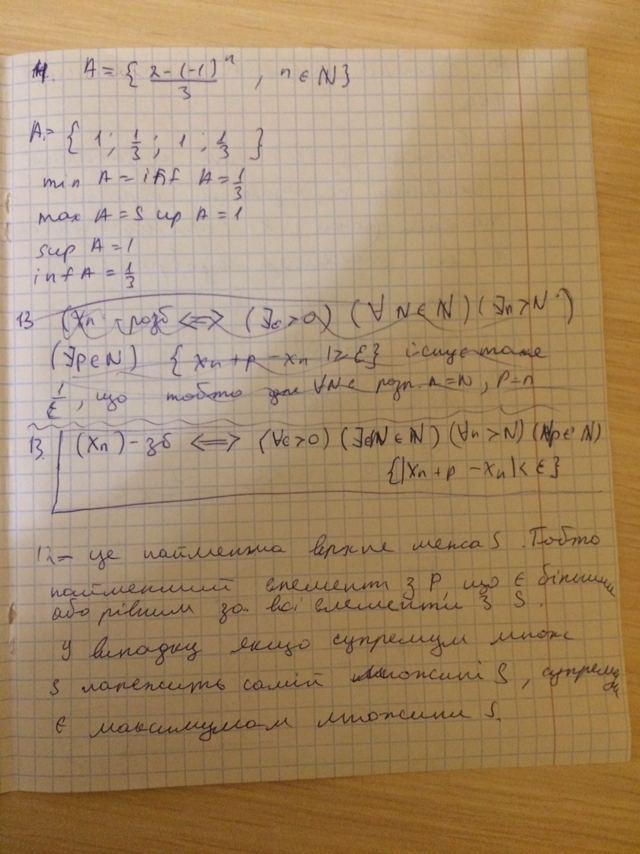 11. A = { (2-(-1)ⁿ)/3 , n ∈ ℕ}
A = { 1 ; 1/3 ; 1 ; 1/3 }
min A = inf A = 1/3
max A = sup A = 1
sup A = 1
inf A = 1/3
13 (Xn - розб <=> (∃ε>0) (∀ N∈ℕ) (∃n>N)
(∃p∈ℕ) { xn+p - xn | ≥ ε}
1/ε , що тобто для ∀N∈ розп. n=N, P=n
13. (Xn) - зб <=> (∀ε>0) (∃N∈ℕ) (∀n>N) (∀p∈ℕ)
{|Xn+p - Xn| < ε}
12 – це найменша верхня межа S. Тобто
найменший елемент з P, що є більшим
або рівним за всі елементи з S.
У випадку якщо супремум множ
S належить самій множині S, супремум
є максимумам множини S.